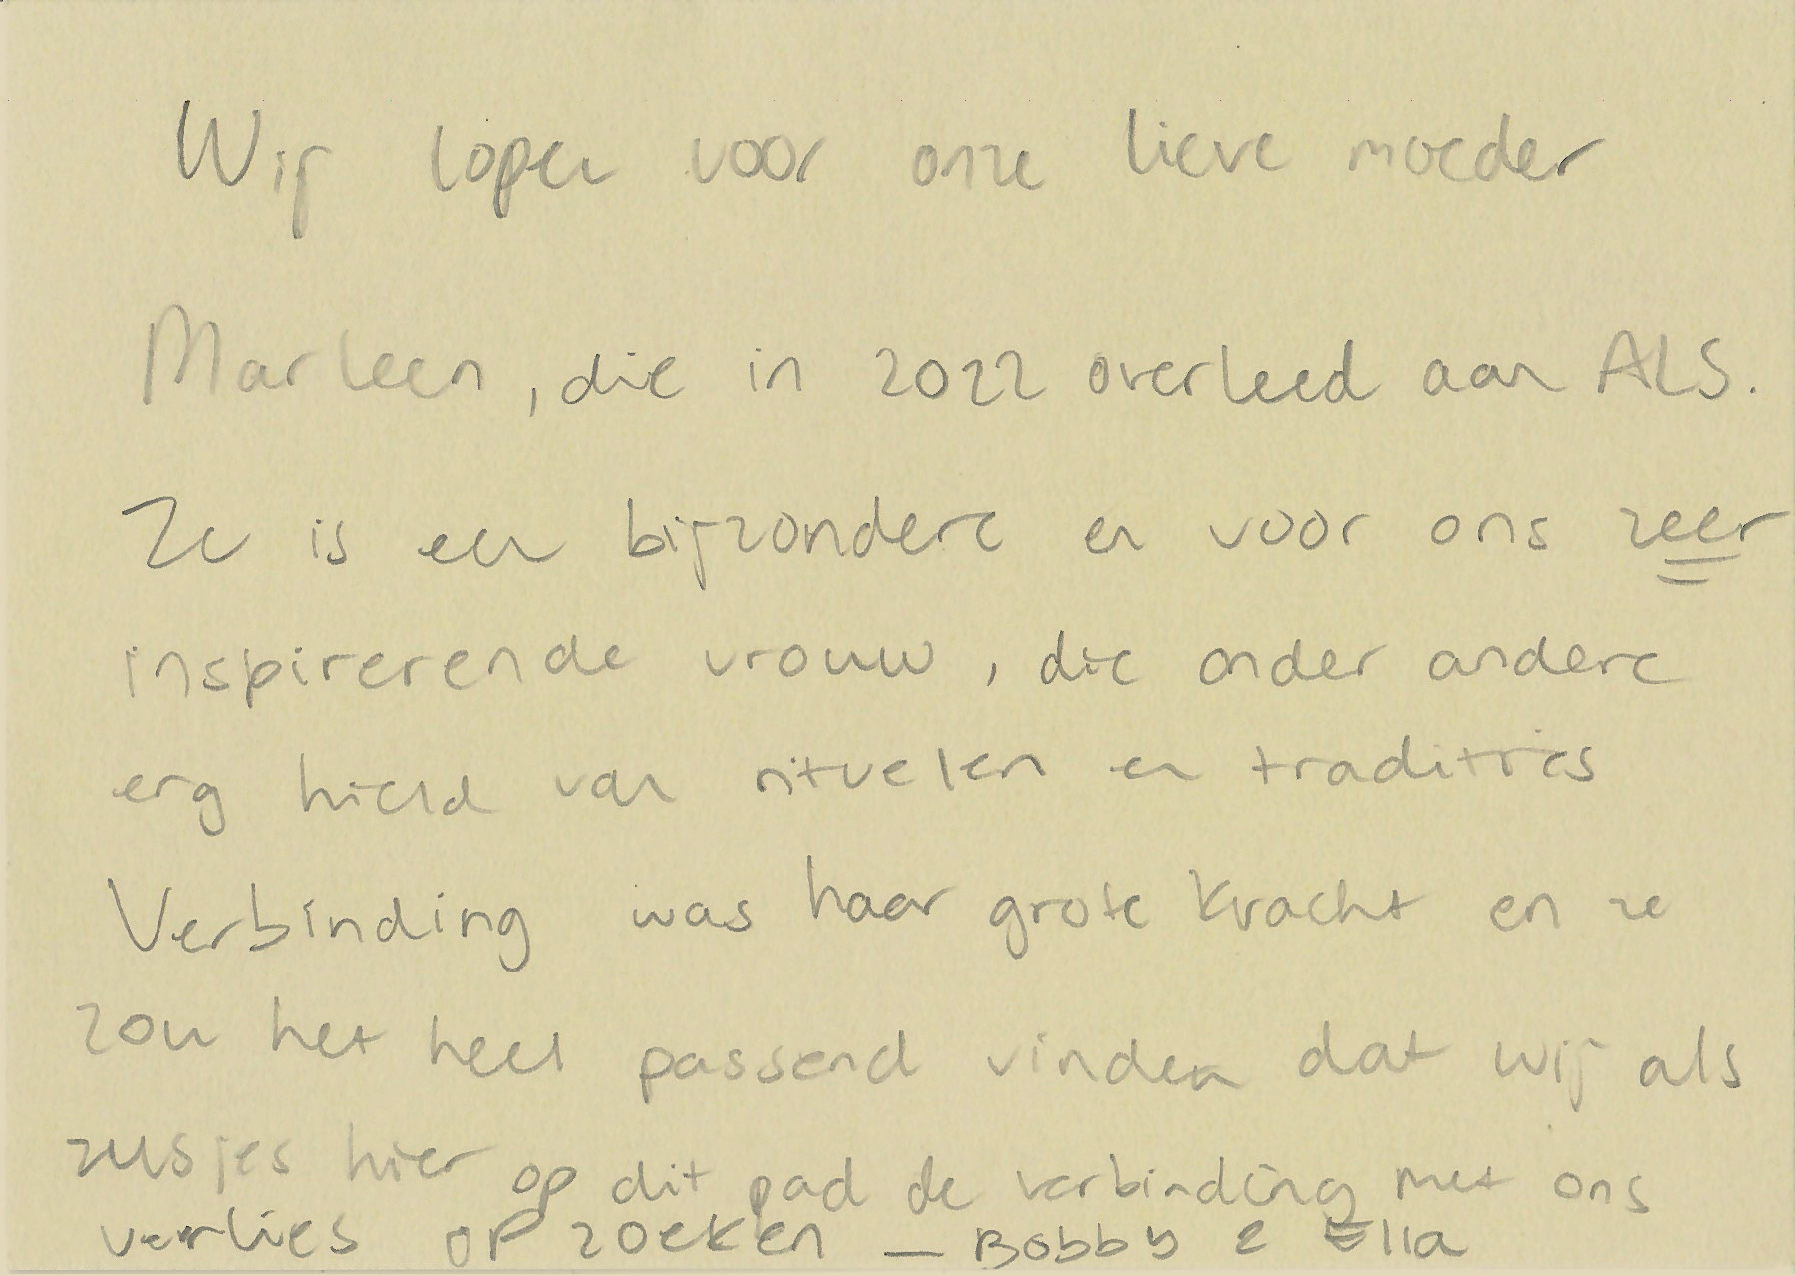 Wij lopen voor onze lieve moeder
Marleen, die in 2022 overleed aan ALS.
Ze is een bijzondere en voor ons zeer
inspirerende vrouw, die onder andere
erg hield van rituelen en tradities
Verbinding was haar grote kracht en ze
zou het heel passend vinden dat wij als
zusjes hier op dit pad de verbinding met ons
verlies op zoeken — Bobby & Ella